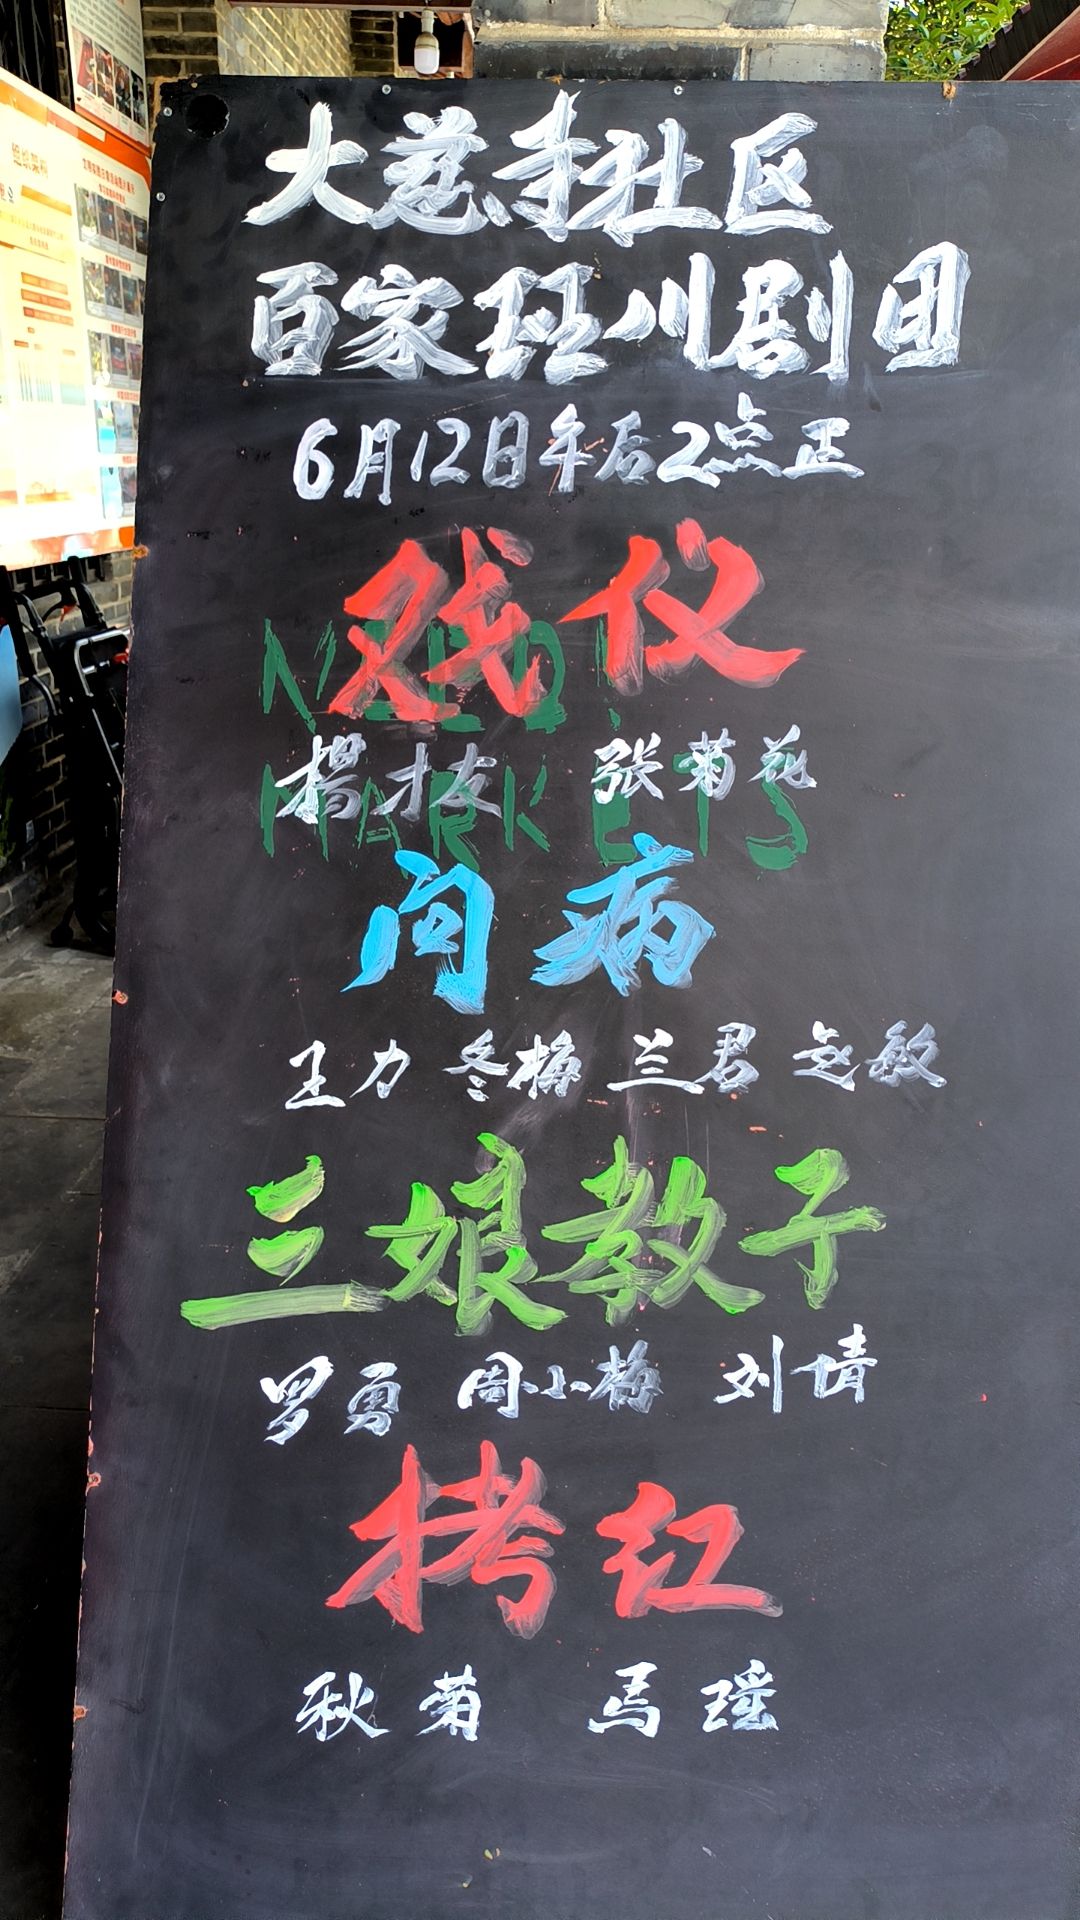 大慈寺社区
百家班川剧团
6月12日午后2点正
戏仪
NEED
楊才友 张菊花
MARKETS
问病
王力 冬梅 兰君 赵敏
三娘教子
罗勇 周小梅 刘倩
拷红
秋菊 马瑶